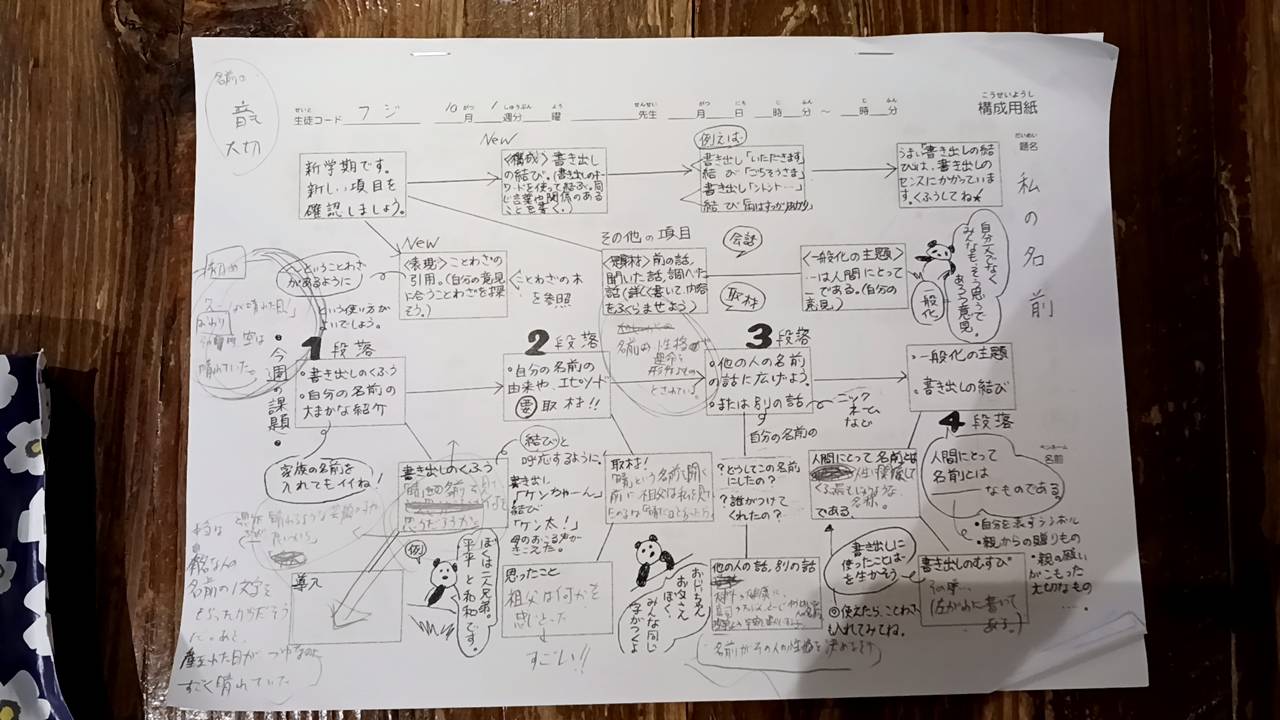 名前は
音
大切
せいと
生徒コード フジ
10月 1週分 曜
がつ しゅうぶん よう
せんせい
先生
がつ にち じ ふん じ ふん
月 日 時 分 ～ 時 分
こうせいようし
構成用紙
だいめい
題名
私の名前
新学期です。
新しい項目を
確認しましょう。
New
〈構成〉書き出し
の結び。(書き出しのキー
ワードを使って結ぶ。同
じ言葉や関係のある
ことを書く。)
例えば
書き出し「いただきます」
結び「ごちそうさま」
書き出し「シント…」
うまい「書き出しの結
び」は、書き出しの
センスにかかっていま
す。くふうしてね★
New
〈表現〉ことわざの
引用。(自分の意見
に合うことわざを探
そう。)
〜ということわざ
があるように
という使い方が
よいでしょう。
ことわざの本
を参照
その他の項目
〈題材〉前の話、
聞いた話、調べた
話(詳しく書いて、内容
をふくらませよう)
会話
取材
〈一般化の主題〉
…は人間にとって
―である。(自分の
意見。)
一般化
自分一人でなく
みんなも、そう思うで
あろう意見。
・今週の課題・
初め
おわり
空は
晴れていた。
1段落
・書き出しのくふう
・自分の名前の
大まかな紹介
2段落
・自分の名前の
由来や、エピソード
要 取材!!
名前は性格
運命を
3段落
・他の人の名前
の話に広げよう。
・または別の話
ニック
ネーム
など
自分の名前の
・一般化の主題
・書き出しの結び
4段落
ペンネーム
名前
家族の名前を
入れてもイイね!
書き出しのくふう
結びと
呼応するように。
書き出し
「ケンちゃーん」
結び
「ケン太!」
母のおこる声が
きこえた。
取材!
「晴」という名前を聞く
前に祖父は私を見て
?どうしてこの名前
にしたの?
?誰がつけて
くれたの?
人間にとって名前とは
である。
人間にとって
名前とは
なものである。
・自分を表すシンボル
・親からの贈りもの
・親の願い
がこもった
大切なもの
.....
導入
例
ぼくは二人兄弟。
平平と和和です。
思ったこと
祖父は何かを
感じとった
すごい!!
おじいちゃん
お父さん
ぼく、
みんな同じ
字がつくよ
他の人の話、別の話
名前がその人の性格を決めるなど
書き出しに
使ったことば
を生かそう
◎使えたら、ことわざ
も入れてみてね。
書き出しのむすび
ある。
名前の1文字を
もらったからだそう
産まれた日がつゆなのに
すごく晴れていた